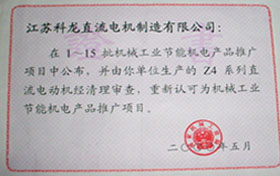 江苏科龙直流电机制造有限公司：
在 1~15 批机械工业节能机电产品推广
项目中公布，并由你单位生产的 Z4 系列直
流电动机经清理审查，重新认可为机械工业
节能机电产品推广项目。
年五月